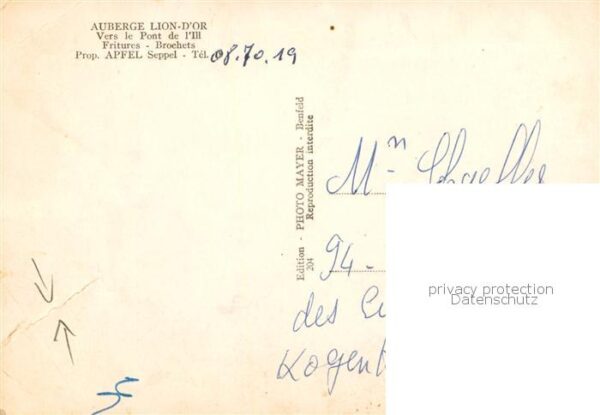 AUBERGE LION-D'OR
Vers le Pont de l'Ill
Fritures - Brochets
Prop. APFEL Seppel - Tél. 08.70.19
Edition - PHOTO MAYER - Benfeld
204 Reproduction interdite
94-
des
privacy protection
Datenschutz